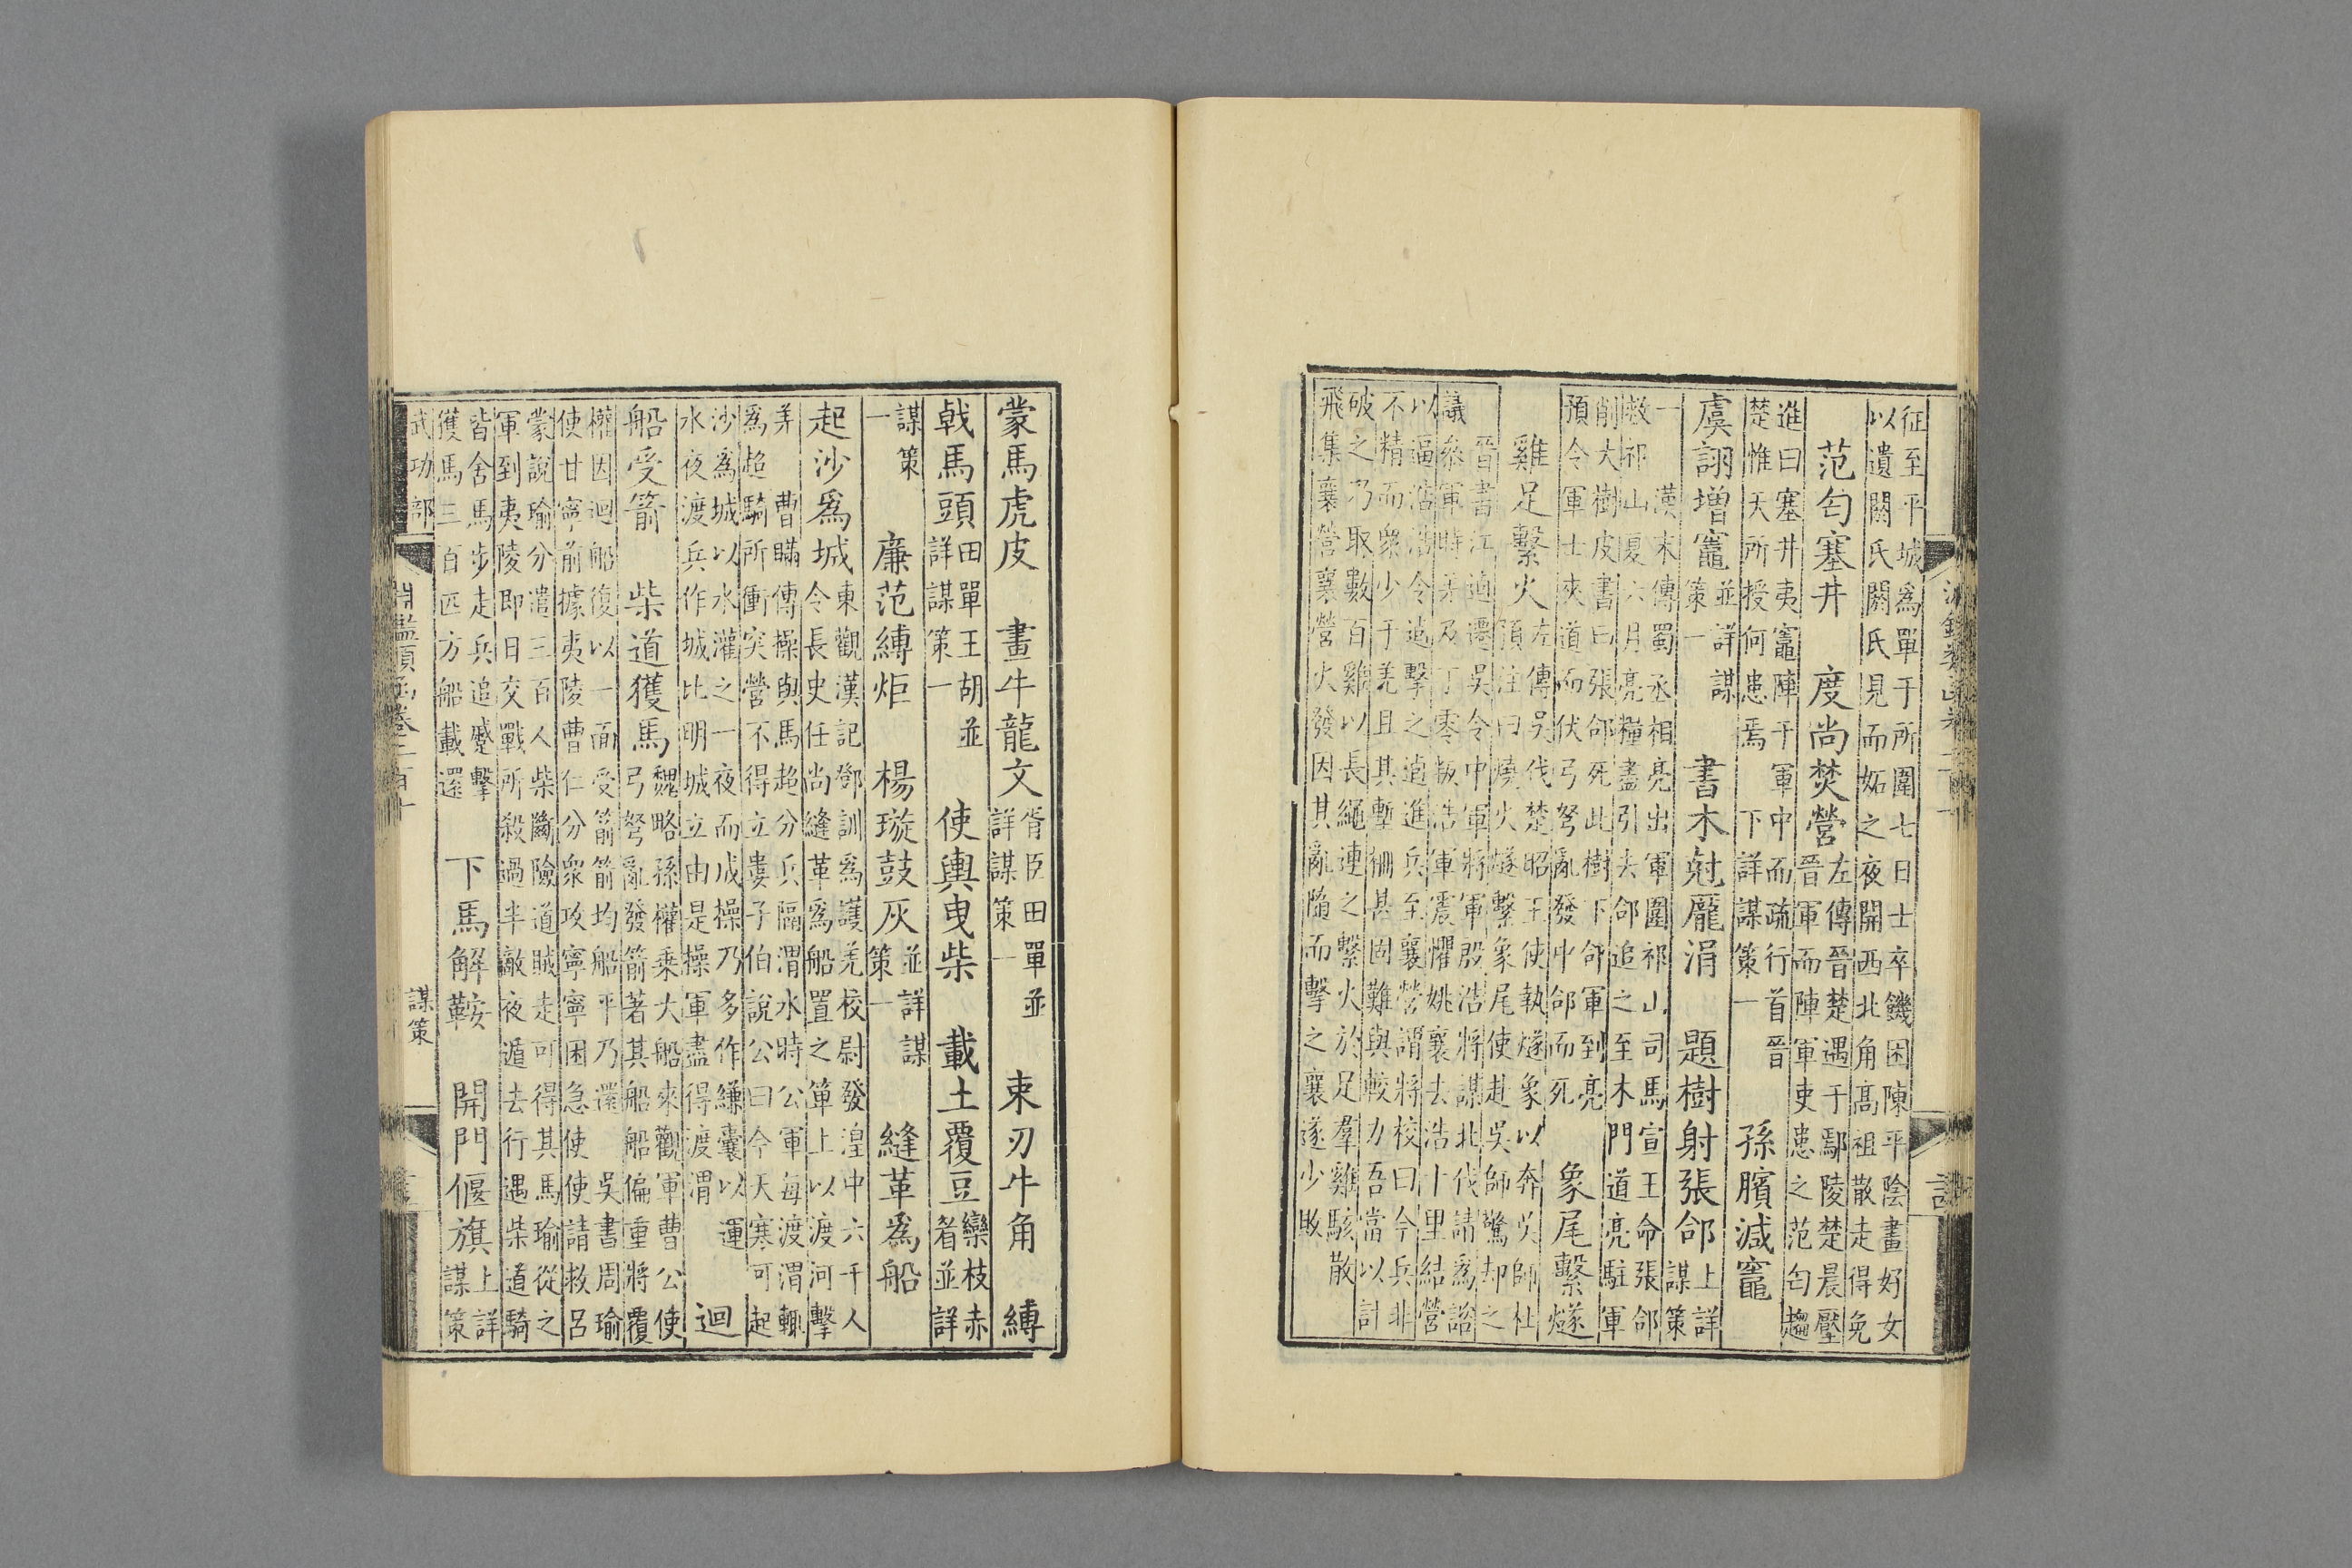 征至平城爲單于所圍七日士卒饑困陳平陰畫好女
以遺閼氏閼氏見而妬之夜開西北角高祖散走得免
范匄塞井　度尚焚營
左傳晉楚遇于鄢陵楚晨壓
晉軍而陣軍吏患之范匄趨
進曰塞井夷竈陣于軍中而疏行首晉
楚惟天所授何患焉　下詳謀策一
孫臏減竈
虞詡增竈
並詳謀
策一
書木尅龐涓　題樹射張郃
上詳
謀策
一　漢末傳蜀丞相亮出軍圍祁山司馬宣王命張郃
救祁山夏六月亮糧盡引去郃追之至木門道亮駐軍
削大樹皮書曰張郃死此樹下郃軍到亮
預令軍士夾道而伏弓弩亂發中郃而死
象尾繫燧
雞足繫火
左傳吳伐楚昭王使執燧象以奔吳師杜
預注曰燒火燧繫象尾使赴吳師驚却之
晉書江逌遷吳令中軍將軍殷浩將謀北伐請爲諮
議參軍時羌及丁零叛浩軍震懼姚襄去浩十里結營
以逼浩浩令逌擊之逌進兵至襄營謂將校曰今兵非
不精而衆少于羌且其塹柵甚固難與較力吾當以計
破之乃取數百雞以長繩連之繫火於足羣雞駭散
飛集襄營襄營火發因其亂隨而擊之襄遂少敗
蒙馬虎皮　畫牛龍文
胥臣田單並
詳謀策一
束刃牛角　縛
戟馬頭
田單王胡並
詳謀策一
使輿曳柴　載土覆豆
欒枝赤
者並詳
謀策
一
廉范縛炬　楊璇鼓灰
並詳謀
策一
縫革爲船
起沙爲城
東觀漢記鄧訓爲護羌校尉發湟中六千人
令長史任尚縫革爲船置之箄上以渡河擊
羌　曹瞞傳操與馬超分兵隔渭水時公軍每渡渭輒
爲超騎所衝突營不得立婁子伯說公曰今天寒可起
沙爲城以水灌之一夜而成操乃多作縑囊以運
水夜渡兵作城比明城立由是操軍盡得渡渭
迴
船受箭　柴道獲馬
魏略孫權乘大船來觀軍曹公使
弓弩亂發箭著其船船偏重將覆
權因迴船復以一面受箭箭均船平乃還　吳書周瑜
使甘寧前據夷陵曹仁分衆攻寧寧困急使使請救呂
蒙說瑜分遣三百人柴斷險道賊走可得其馬瑜從之
軍到夷陵即日交戰所殺過半敵夜遁去行遇柴道騎
皆舍馬步走兵追蹙擊
獲馬三百匹方船載還
下馬解鞍　開門偃旗
上詳
謀策
武功部　淵鑑類函卷二百十　謀策